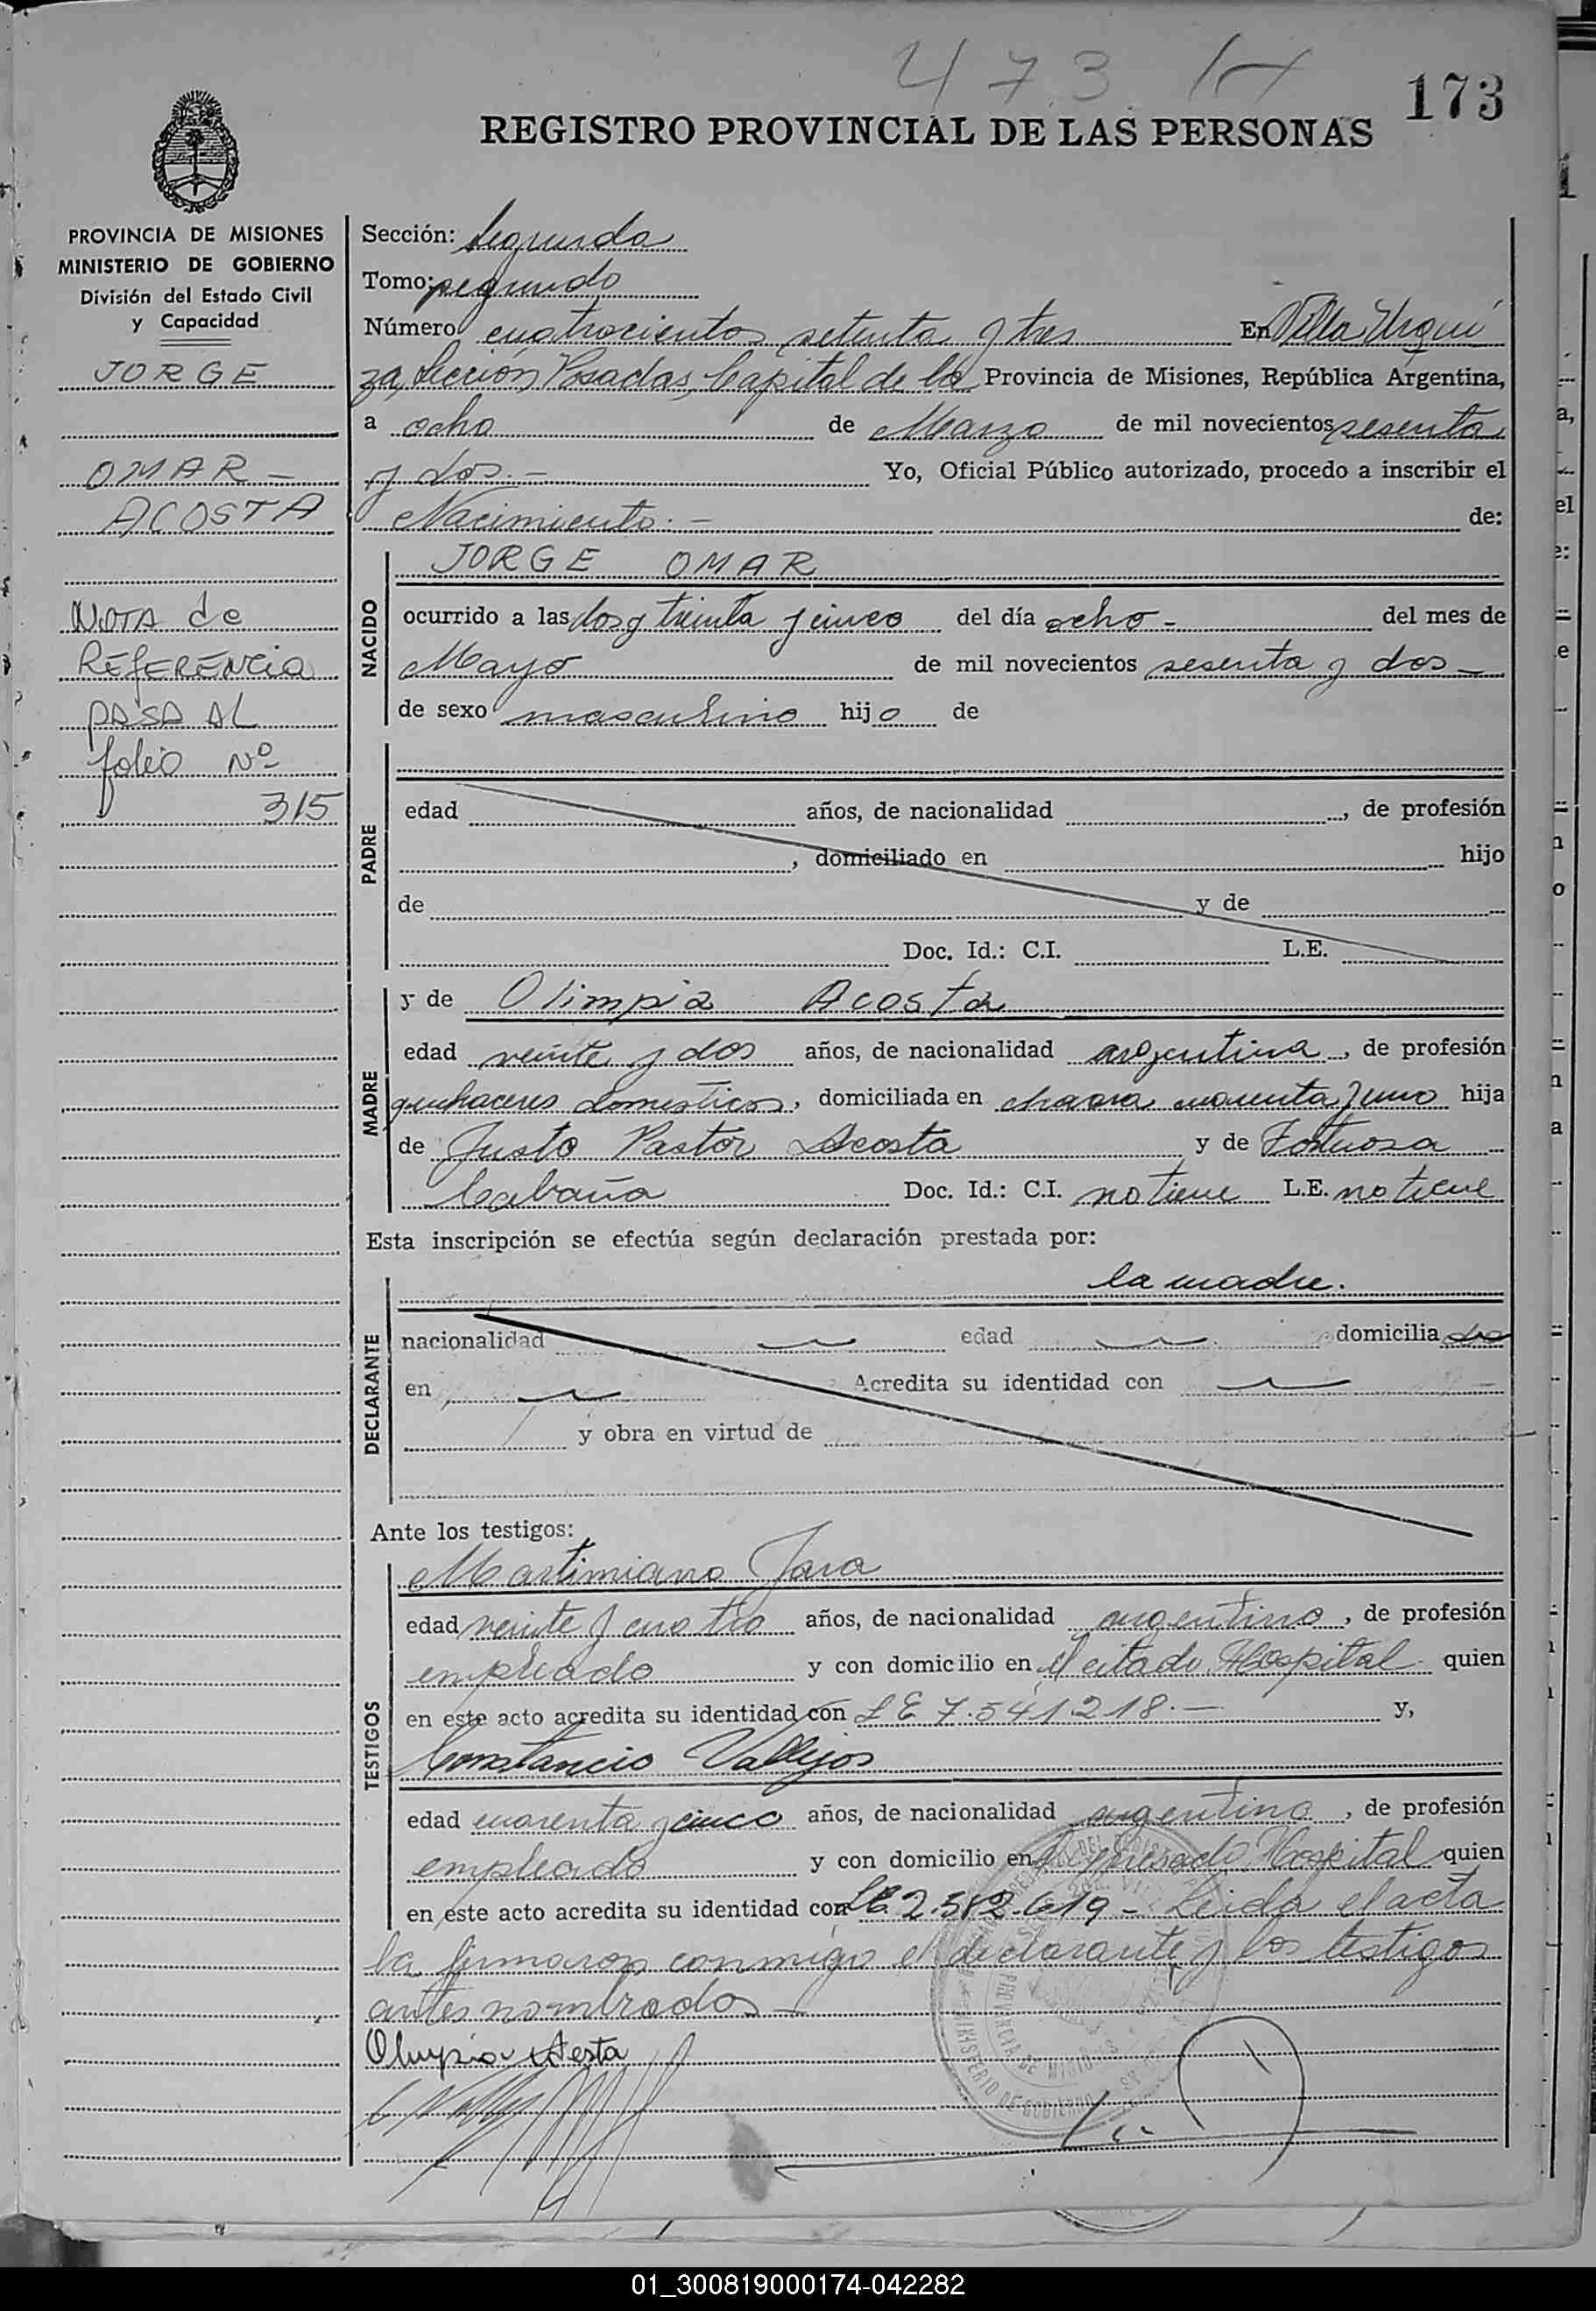 473
173
REGISTRO PROVINCIAL DE LAS PERSONAS
PROVINCIA DE MISIONES
MINISTERIO DE GOBIERNO
División del Estado Civil
y Capacidad
JORGE
OMAR -
ACOSTA
NOTA de
REFERENCIA
PASA AL
folio Nº
315
Sección: Segunda
Tomo: segundo
Número cuatrocientos setenta y tres En Villa Urqui
za, Sección Posadas, Capital de la Provincia de Misiones, República Argentina,
a ocho de Marzo de mil novecientos sesenta
y dos.- Yo, Oficial Público autorizado, procedo a inscribir el
Nacimiento.- de:
NACIDO
JORGE OMAR
ocurrido a las dos y treinta y cinco del día ocho - del mes de
Mayo de mil novecientos sesenta y dos -
de sexo masculino hijo de
PADRE
edad años, de nacionalidad , de profesión
, domiciliado en hijo
de y de
Doc. Id.: C.I. L.E.
MADRE
y de Olimpia Acosta
edad veinte y dos años, de nacionalidad argentina, de profesión
quehaceres domesticos, domiciliada en chacra cuarenta y uno hija
de Justo Pastor Acosta y de Fortuosa
Cabaña Doc. Id.: C.I. no tiene L.E. no tiene
Esta inscripción se efectúa según declaración prestada por:
la madre.
DECLARANTE
nacionalidad edad domicilia
en Acredita su identidad con
y obra en virtud de
Ante los testigos:
TESTIGOS
Martimiano Jara
edad veinte y cuatro años, de nacionalidad argentino, de profesión
empleado y con domicilio en el citado Hospital quien
en este acto acredita su identidad con L E 7.541.218.- y,
Constancio Vallejos
edad cuarenta y cinco años, de nacionalidad argentino, de profesión
empleado y con domicilio en Hospital quien
en este acto acredita su identidad con LE. 2.582.619 - Leida el acta
la firmaron conmigo el declarante y los testigos
antes nombrados -
Olimpia Acosta
01_300819000174-042282